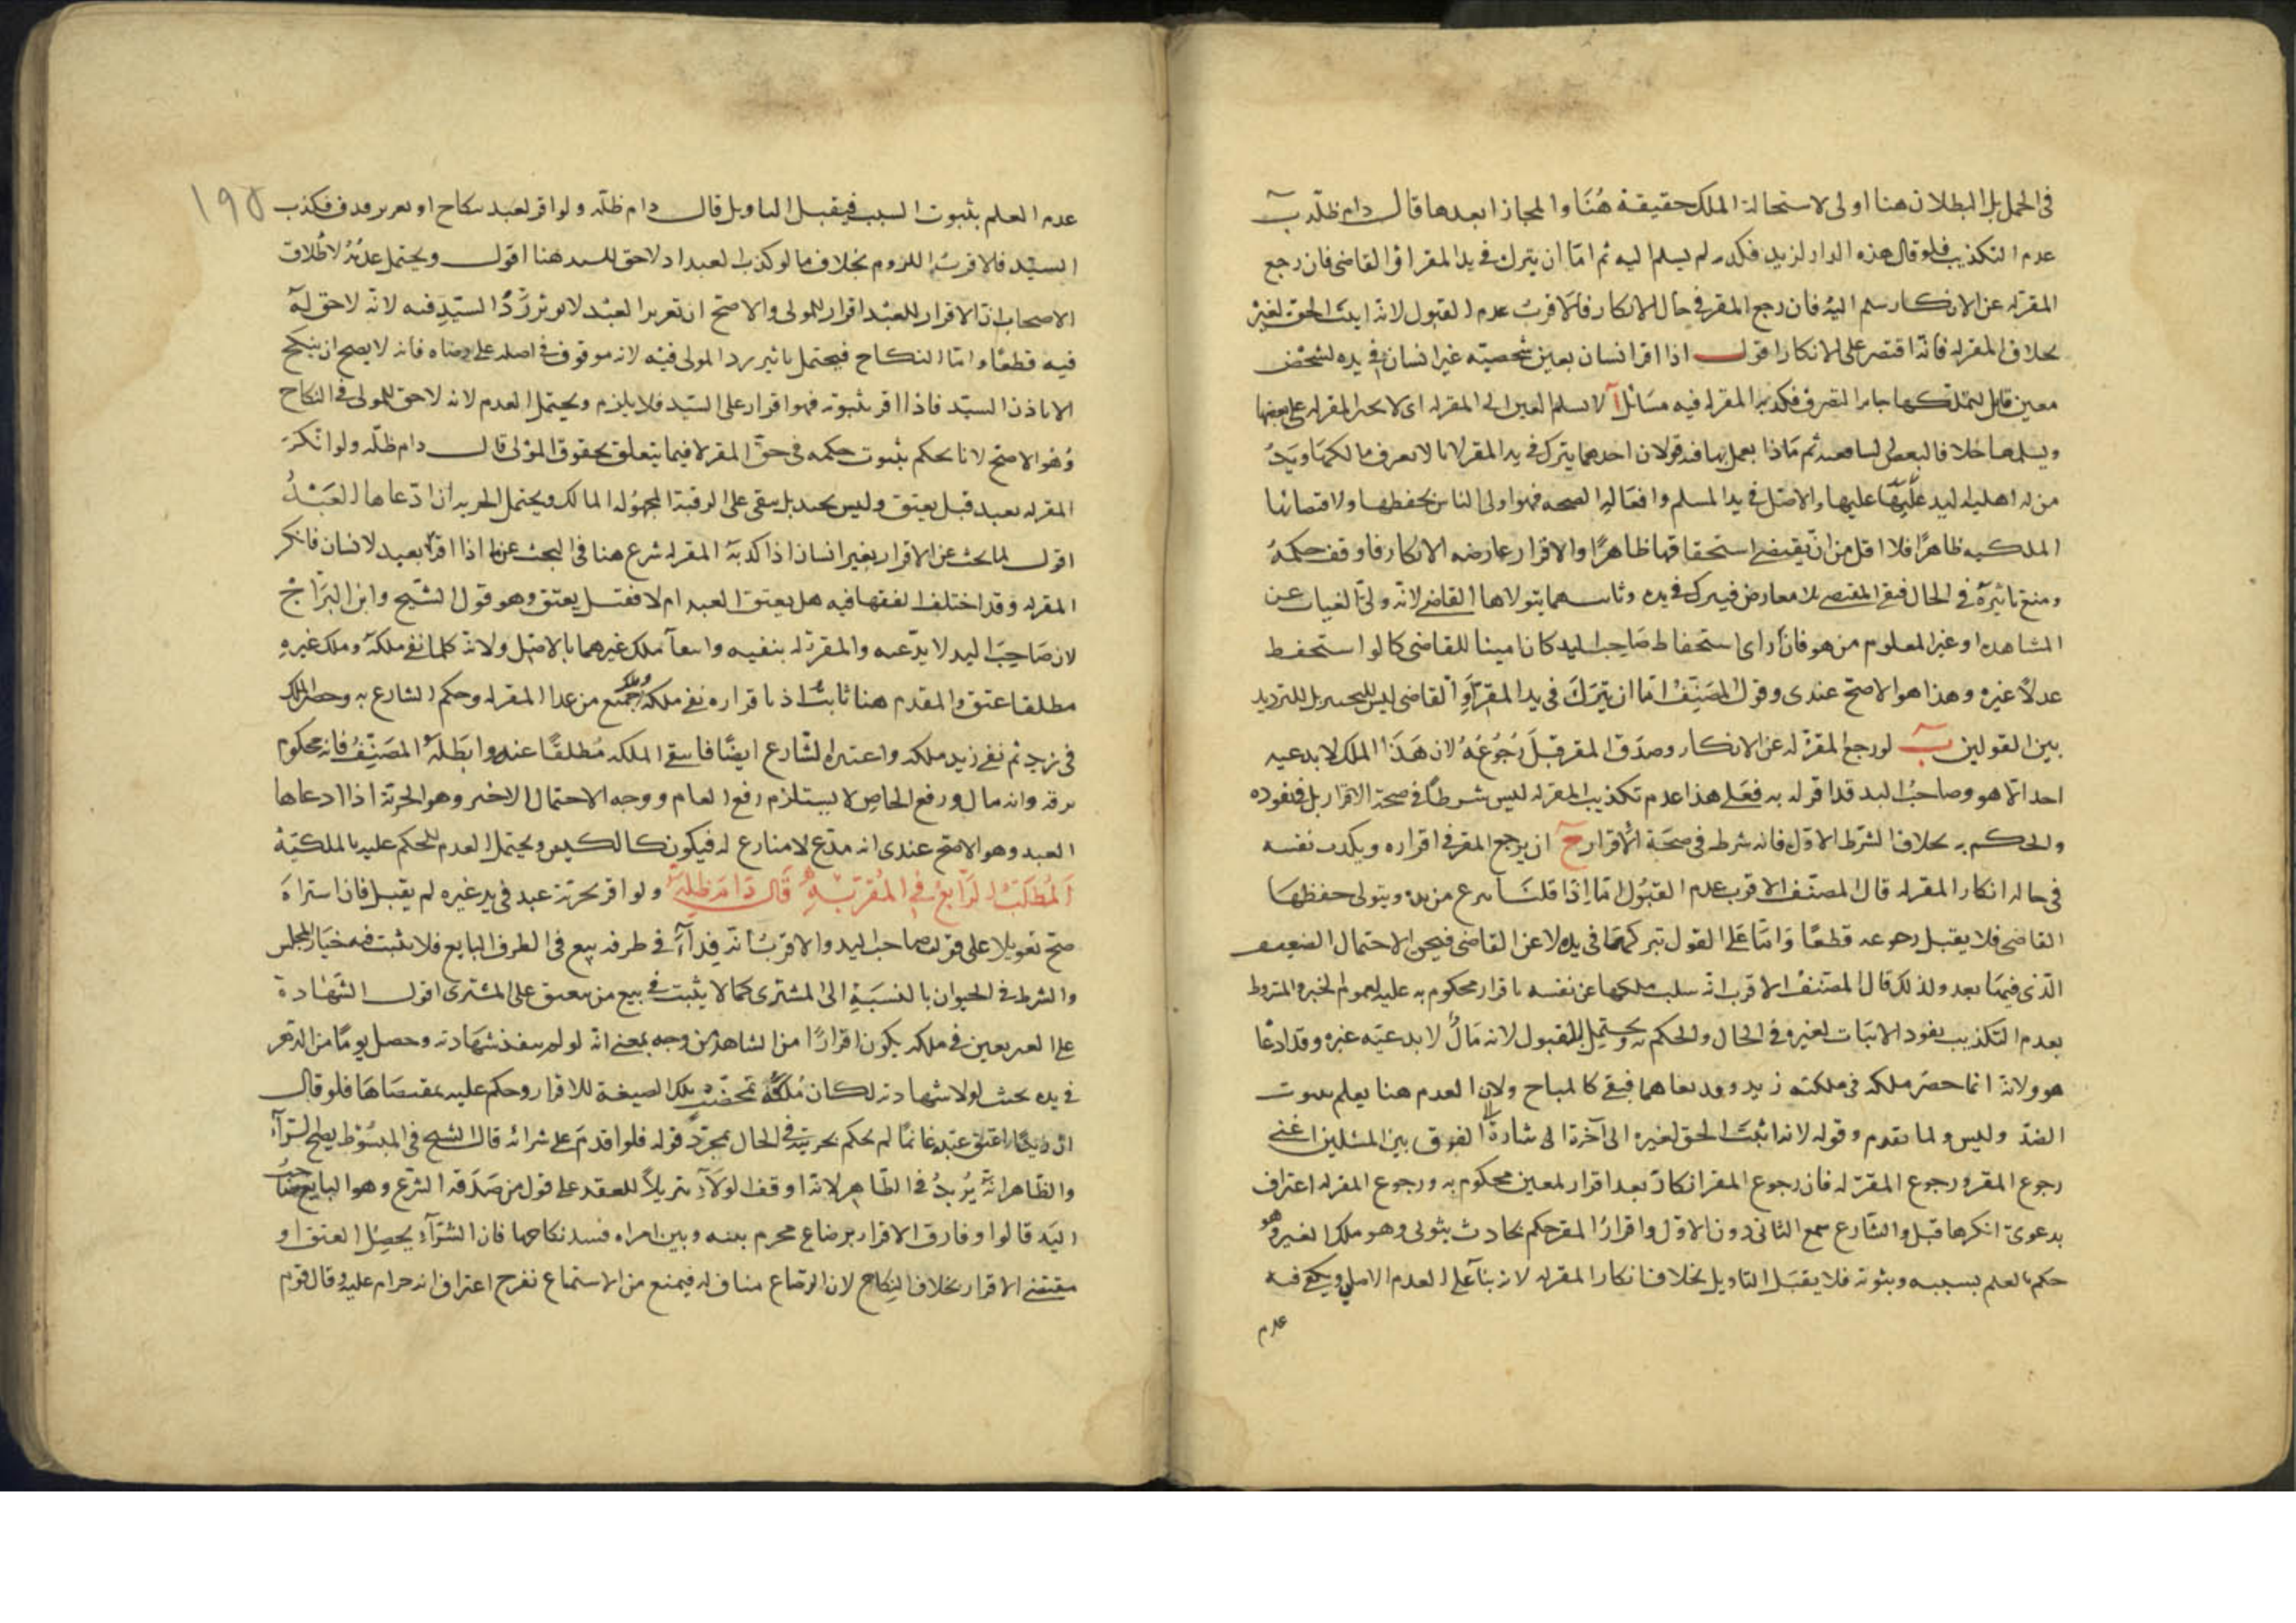 فى الحمل بل البطلان هنا اولى لاستحالة الملك حقيقة هُنَا والمجاز ابعدها قال دام ظلّه ب
عدم التكذيب فلو قال هذه الدار لزيد فكذبه لم يسلم اليه ثم امّا ان يترك فى يد المقر او القاضى فان رجع
المقرّ له عن الانكار سلم اليه فان رجع المقر فى حال الانكار فالاقربُ عدم القبول لانه اثبت الحق لغيْره
بخلاف المقر له فانّه اقتصر على الانكار اقول اذا اقر انسان بعين شخصيّه غير انسان فى يده لشخص
معين قابل لتملكها جايز التصرف فكذبه المقر له فيه مسَائل آ لا يسلم العين الى المقر له اى لا يجبر المقر له على قبضها
ويسلمها خلافا لبعض الشافعيه ثم مَاذا يعمل بها فيه قولان احدهما يترك فى يد المقر لانا لا نعرف مالكهَا ويَدُ
من له اهلية اليد عليها والاصل فى يد المسلم وافعَاله الصحه فهو اولى الناس بحفظها ولاقتضائها
الملكيه ظاهرًا فلا اقل من ان يقتضى استحقاقها ظاهرًا والاقرار عارضه الانكار فاوقف حكمهُ
ومنع تاثيرَهُ فى الحال فبقى المقتضى بلا معارض فيترك فى يده وثانيهما يتولاها القاضى لانه ولىّ الغياب عن
المشاهده او غير المعلوم من هو فان راى استحفاظ صَاحب اليد كان امينا للقاضى كما لو استحفظ
عدلاً غيره وهذا هو الاصحّ عندى وقول المصَنِّفُ امّا ان يترَكَ فى يد المقِرّ او القاضى ليس للتخيير بل للترديد
بين القولين ب لو رجع المقرّ له عن الانكار وصدّق المقر قبلَ رُجُوعُهُ لان هَذا الملك لا يدعيه
احد الا هو وصاحبُ اليد قد اقر له به فعَلى هذا عدم تكذيب المقر له ليس شرطاً فى صحة الاقرار بل فى نفوذه
والحكم به بخلاف الشرط الاوّل فانه شرط فى صحّة الاقرار ج ان يرجع المقر فى اقراره ويكذب نفسه
فى حاله انكار المقر له قال المصنّف الاقرب عدم القبُول امّا اذا قلنا ينزع من يده ويتولى حفظهَا
القاضى فلا يقبل رجوعه قطعًا وَامّا عَلى القول بتركهَا فى يده لا عن القاضى فيجئ الاحتمال الضعيف
الّذى فيمَا بعد ولذلك قال المصَنّفُ الاقرب انه سلب ملكها عن نفسه باقرار محكوم به عليه لعموم الخبر والمشروط
بعدم التكذيب نفوذ الاثبات لغيره فى الحال والحكم به ويحتمل القبول لانه مَالٌ لا يدعيّه غيره وقد ادعَا
هو ولانه انما حصَر ملكه فى ملكيته زيد وقد نفاهما فبقى كالمباح ولان العدم هنا يعلم بثبوت
الضدّ وليس ولما تقدم وقوله لانه اثبَتَ الحق لغيره الى آخرة اشارة الى الفرق بين المسئلين اعنى
رجوع المقر ورجوع المقرّ له فان رجوع المقر انكارٌ بعد اقرار لمعين محكوم به ورجوع المقر له اعتراف
بدعوىً انكرها قبل والشارع سمع الثانى دون الاوّل واقرارُ المقر حكم بحادث ثبوتى وهو ملك الغير وهو
حكم بالعلم بسببه وثبوته فلا يقبل التاويل بخلاف انكار المقر له لانه بناءً على العدم الاصلى ويكفى فيه
عدم
١٩٥
عدم العلم بثبوت السبب فيقبل التاويل قال دام ظلّه ولو اقر لعبد بنكاح او تعزير قذف فكذب
السيّد فالاقربُ اللزوم بخلاف ما لو كذب العبد اذ لا حق للسيد هنا اقول ويحتمل عدَمُه لاطلاق
الاصحاب انّ الاقرار للعبْد اقرار للمولى والاصحّ ان تعزير العبْد لا يؤثر ردُّ السيّدِ فيه لانّه لا حق له
فيه قطعًا وامّا النكاح فيحتمل تاثير رد المولى فيْه لانه موقوف فى اصله على رضاه فانه لا يصح ان ينكح
الا باذن السيّد فاذا اقر بثبوته فهو اقرار على السيّد فلا يلزم ويحتمل العدم لانه لا حق للمولى فى النكاح
وُهو الاصحّ لانا نحكم بثبوت حكمه فى حقّ المقر لا فيما يتعلق بحقوق المولى قال دام ظلّه ولو انكرَ
المقر له بعبد قيل يعتق وليس بجيد بل يبقى على الرقية المجهُولة المالك ويحتمل الحرية ان ادّعاها العَبْدُ
اقول لما بحث عن الاقرار بغير انسان اذا كذبهُ المقر له شرع هنا فى البحث عن ما اذا اقرّ بعبد لانسان فانكر
المقر له وقد اختلف الفقها فيه هل يعتق العبد ام لا فقيل يعتق وهو قول الشيخ وابن البرّاج
لان صَاحِبَ اليد لا يدّعيه والمقرّ له ينفيه وانتفا ملك غيرهما بالاصل ولانه كلما نفى ملكهُ وملك غيرهِ
مطلقا عتق والمقدم هنا ثابتٌ اذ باقراره نفى ملكه وملك جميع من عدا المقر له وحكم الشارع به وحصر الملك
فى زيد ثم نفى زيد ملكه واعتبره الشارع ايضًا فانتفى الملكه مُطلقًا عنه وابطَلهُ المصَنِّفُ فانه محكوم
برقه وانه مال ورفع الخاص لا يستلزم رفع العام ووجه الاحتمال الاخير وهو الحرية اذا ادعاها
العبد وهو الاصحّ عندى انه مدّعٍ لا منازع له فيكون كالكيس ويحتمل العدم للحكم عليه بالملكيّة
اَلمَطلَبُ الرَّابعُ فِى المُقرّ بِهِ قَال دَامَ ظِلّه ولو اقر بحريّة عبد فى يد غيره لم يقبل فان اشتراهَ
صحّ تعويلا على قول صاحب اليد والاقربُ انه فداءٌ فى طرفه بيع فى الطرف البايع فلا يثبت فيه خيَار المجلس
والشرط فى الحيوان بالنسبَةِ الى المشترى كما لا يثبت فى بيع من يعتق على المشترى اقول الشهَادة
على الغير بعين فى ملكه يكون اقرارًا من الشاهد من وجه بمعنى انه لو لم ينفذ شهادته وحصل يومًا من الدّهر
فى يده بحيث لولا شهادته لكان مُلكهُ تمحّضت تلك الصيغة للاقرار وحكم عليه بمقتضاهَا فلو قال
انّ زيدًا اعتق عبْده غانمًا لم يحكم بحريته فى الحال بمجرّد قوله فلو اقدمَ على شرائه قال الشيخ فى المبسُوْط يصح الشراء
والظاهر انّهُ يُريدُ فى الظّاهِر لانه اوقف الوَلاء تنزيلاً للعقد على قول من صَدّقهُ الشرع وهو البايع صَاحبُ
اليَد قالوا وفارق الاقرار برضاع محرم بينه وبين امراه فسد نكاحها فان الشرآء يحصل العتق او
مقتضى الاقرار بخلاف النكاح لان الرضاع مناف له فيمنع من الاستمتاع بفرج اعترف انه حرام عليه وقال قوم